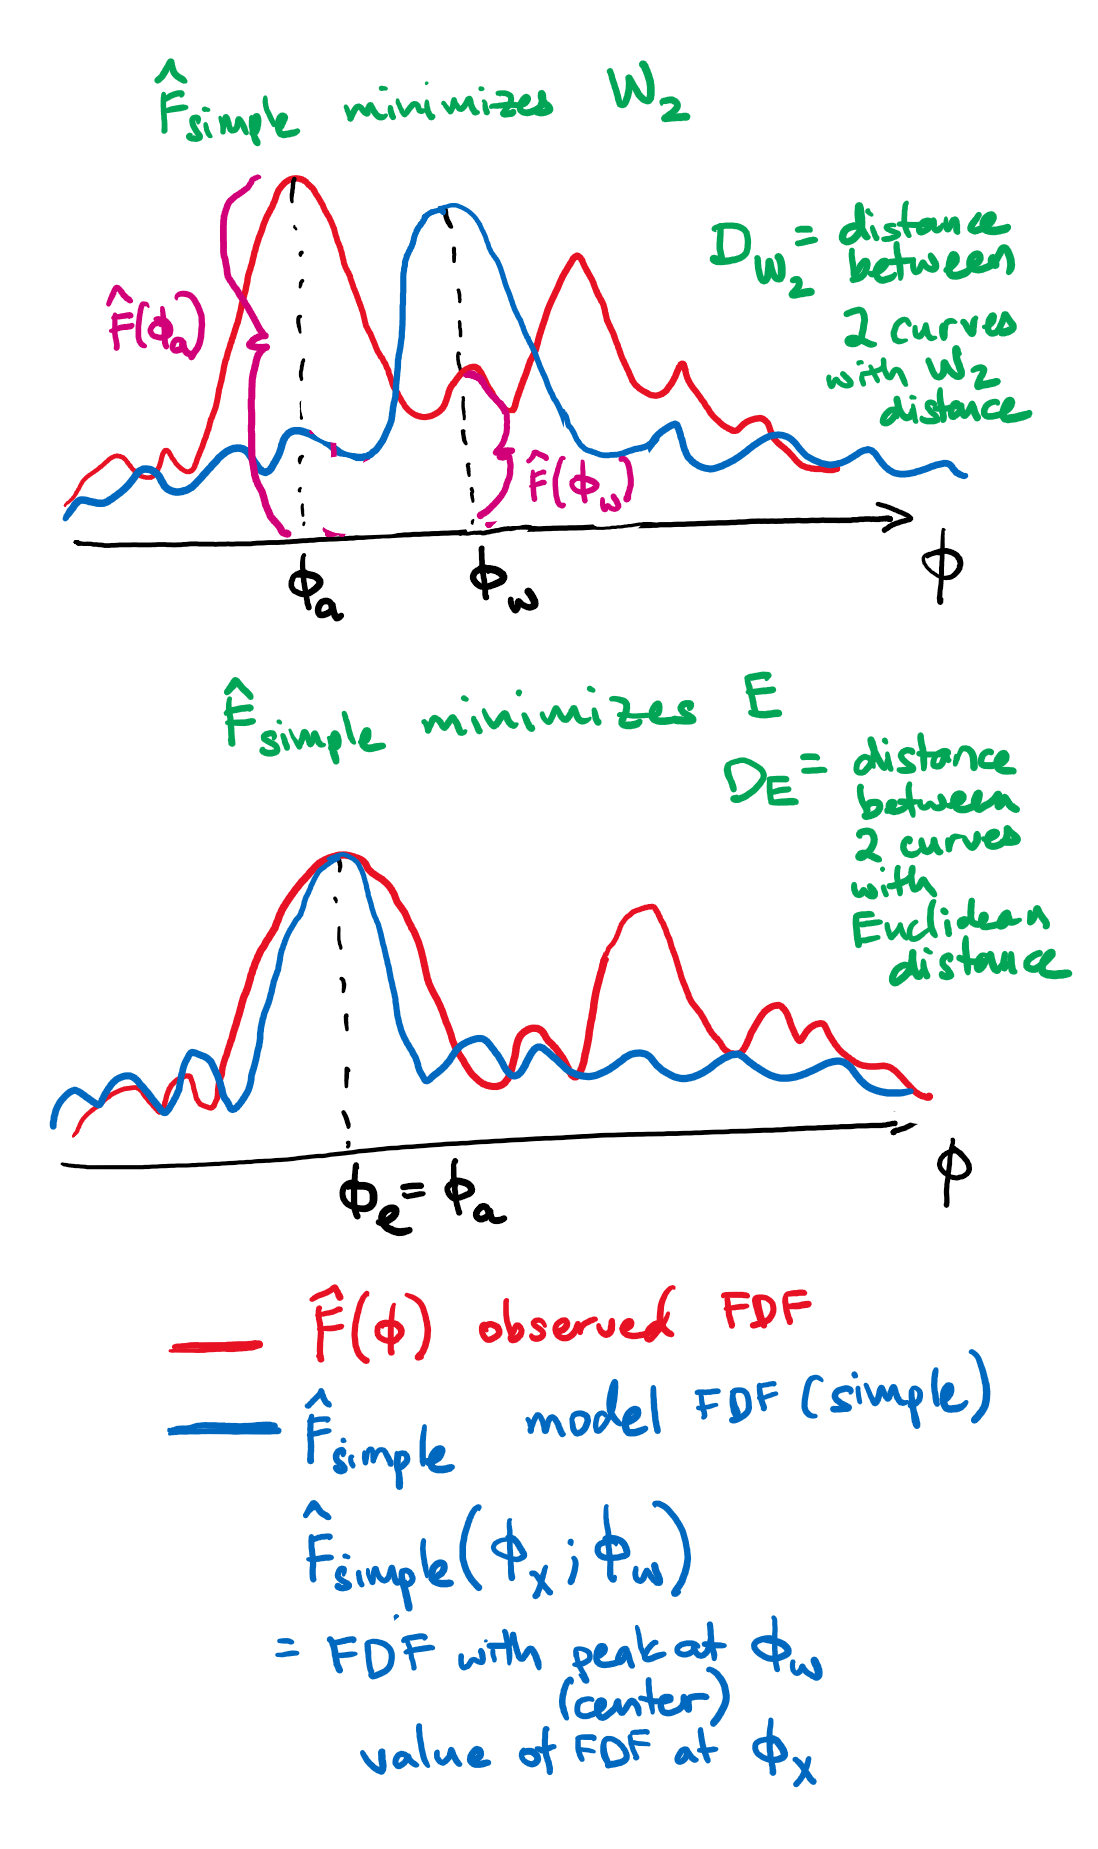 F̂simple minimizes W₂
D_W₂ = distance
between
2 curves
with W₂
distance
F̂(ϕₐ)
F̂(ϕ_w)
ϕₐ ϕ_w ϕ
F̂simple minimizes E
D_E = distance
between
2 curves
with
Euclidean
distance
ϕₑ = ϕₐ ϕ
F̂(ϕ) observed FDF
F̂simple model FDF (simple)
F̂simple(ϕₓ; ϕ_w)
= FDF with peak at ϕ_w
(center)
value of FDF at ϕₓ